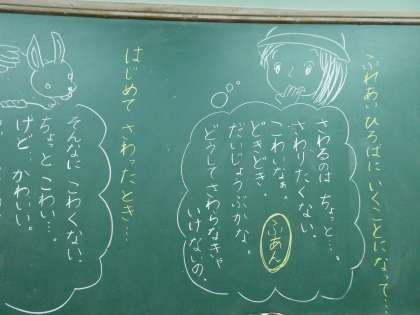 ふれあいひろばに いくことになって…
さわるのは ちょっと…。
さわりたくない。
こわいなぁ。
どきどき。
だいじょうぶかな。
どうしてさわらなきゃ
いけないの。
ふあん
はじめて さわったとき…
そんなに こわくない。
ちょっと こわい…。
けど、かわいい。